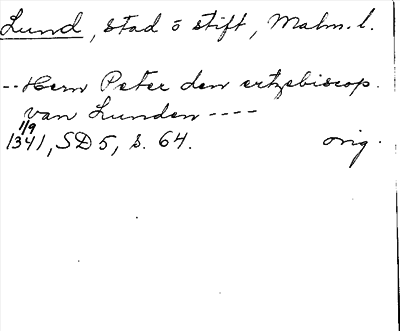 Lund, stad o stift, Malm. l.
-- Hern Peter den ertzebiscop.
van Lunden ----
1/9
1341, SD 5, s. 64. orig.